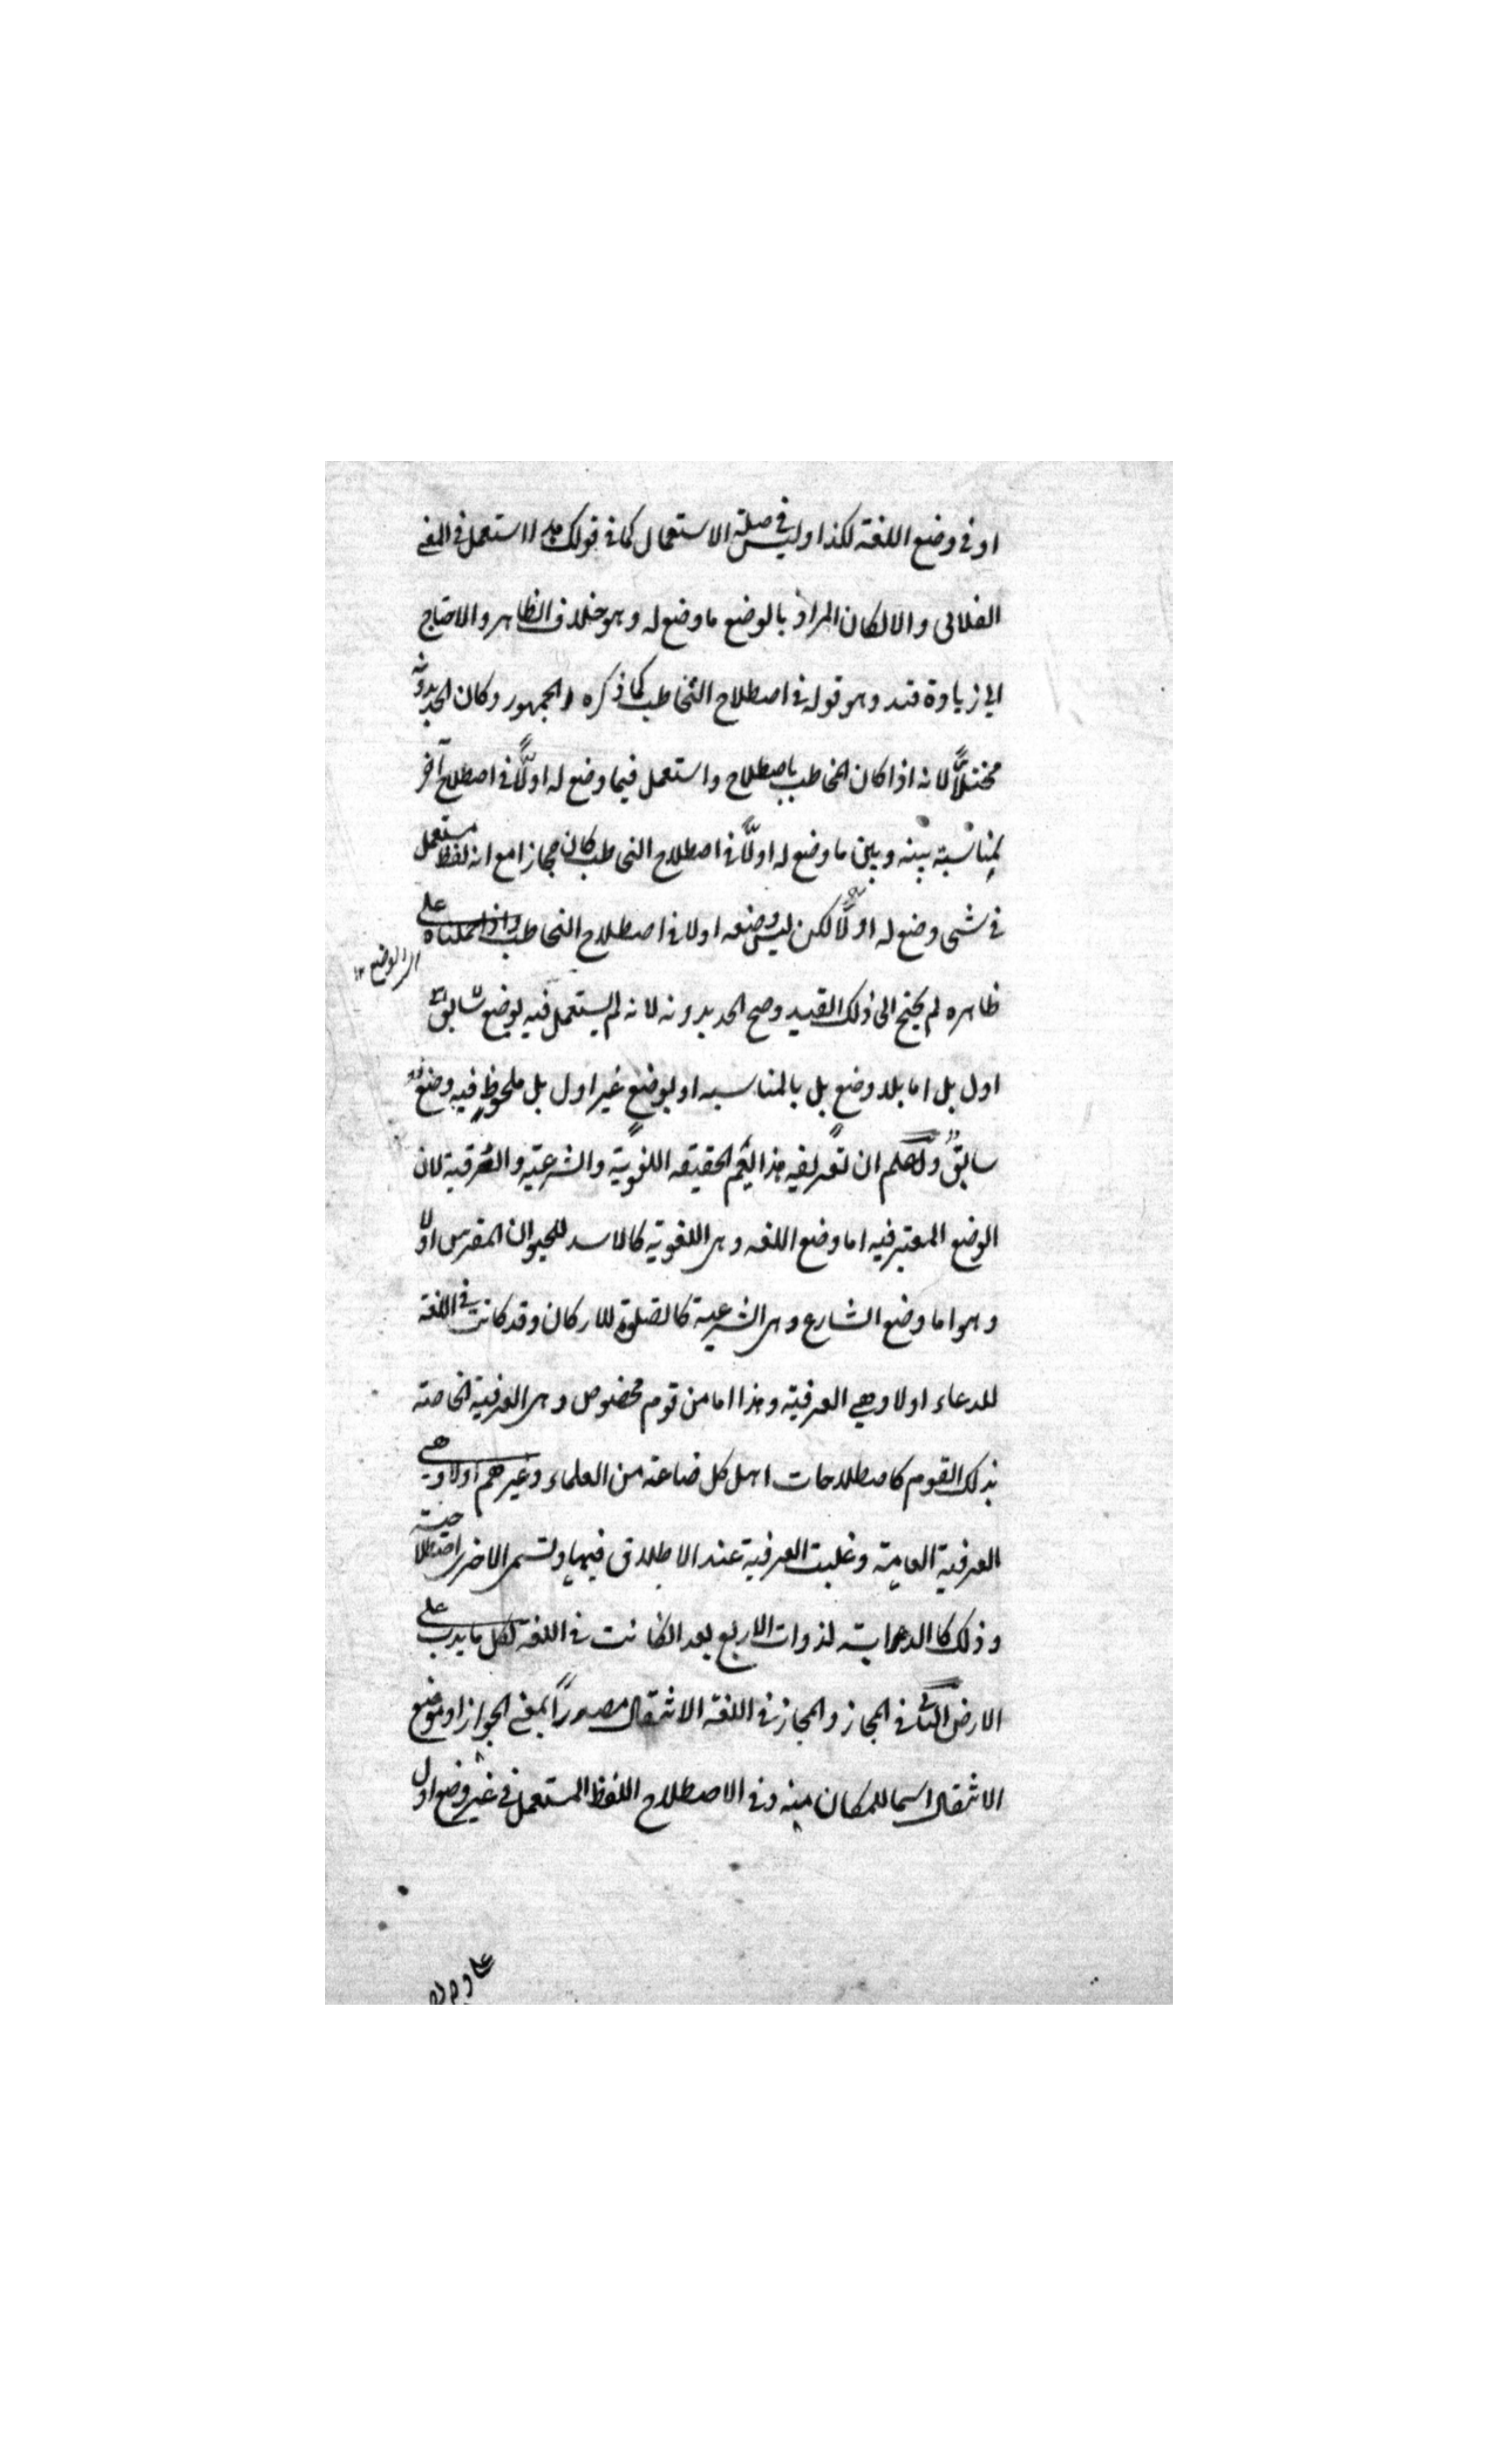 او في وضع اللغة لكذا وليس في صلة الاستعمال كما في قولك هذا استعمل في المعنى
الفلاني والا لكان المراد بالوضع ما وضع له وهو خلاف الظاهر والاحتاج
الى زيادة قيد وهو قوله في اصطلاح التخاطب كما ذكره الجمهور وكان الحد بدونه
مختلًّا لانه اذا كان التخاطب باصطلاح واستعمل فيما وضع له اولًا في اصطلاح آخر
لمناسبة بينه وبين ما وضع له اولًا في اصطلاح التخاطب كان مجازا مع انه لفظ مستعمل
في شئ وضع له اولًا لكن ليس وضعه اولا في اصطلاح التخاطب واذا حملناه على
الوضع ١٢
ظاهره لم يحتج الى ذلك القيد وصح الحد بدونه لانه لم يستعمل فيه بوضع سابق
اول بل اما بلا وضع بل بالمناسبه او بوضع غير اول بل ملحوظ فيه وضع
سابق واعلم ان تعريفه هذا يعم الحقيقه اللغوية والشرعية والعرفية لان
الوضع المعتبر فيه اما وضع اللغه وهى اللغوية كالاسد للحيوان المفترس اولا
وهو اما وضع الشارع وهى الشرعية كالصلوة للاركان وقد كانت في اللغة
للدعاء اولا وهي العرفية وهذا اما من قوم مخصوص وهى العرفية الخاصة
بذلك القوم كاصطلاحات اهل كل صناعة من العلماء وغيرهم اولا وهي
العرفية العامة وغلبت العرفية عند الاطلاق فيها وتسمى الاخرى اصطلاحية
وذلك كالدابة لذوات الاربع بعد ان كانت في اللغة لكل ما يدب على
الارض الثاني في المجاز والمجاز في اللغة الانتقال مصدرًا بمعنى الجواز او موضع
الانتقال اسما للمكان منه وفي الاصطلاح اللفظ المستعمل في غير وضع اول